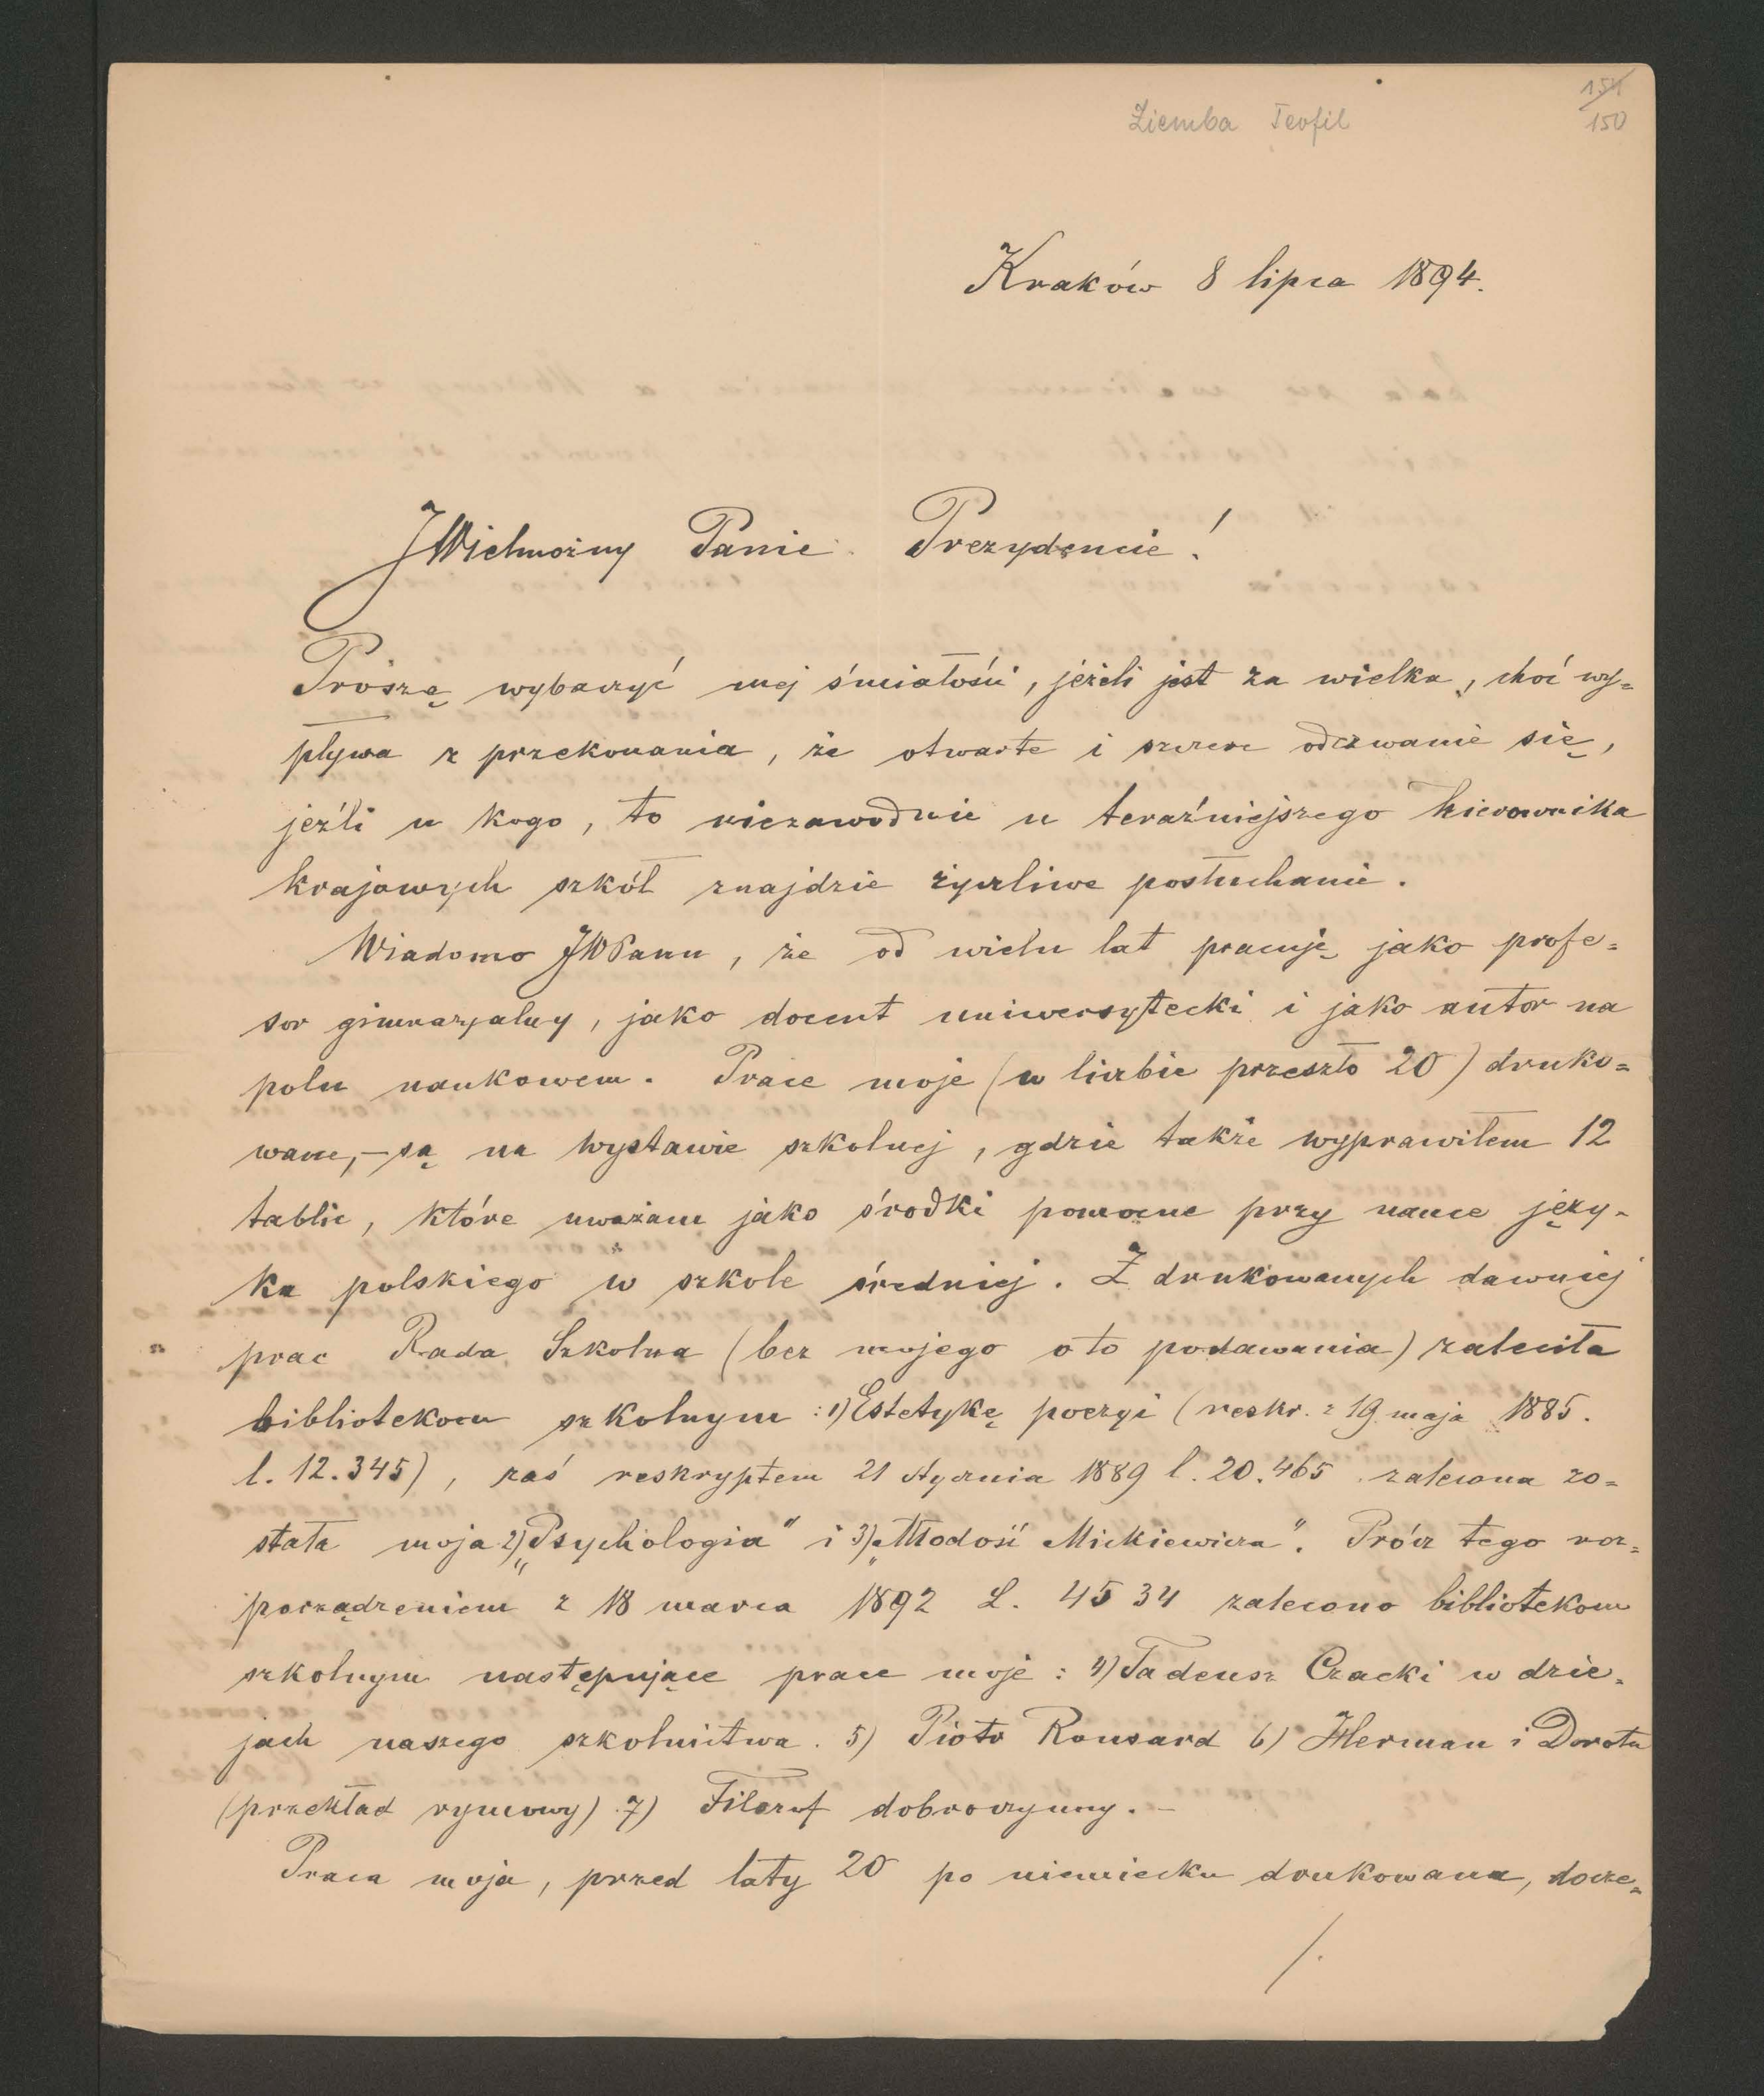 154
150
Ziemba Teofil
Kraków 8 lipca 1894.
JWielmożny Panie Prezydencie!
Proszę wybaczyć mej śmiałości, jeżeli jest za wielka, choć wy=
pływa z przekonania, że otwarte i szczere odezwanie się,
jeźli u kogo, to niezawodnie u teraźniejszego kierownika
krajowych szkół znajdzie życzliwe posłuchanie.
Wiadomo JWPanu, że od wielu lat pracuję jako profe=
sor gimnazyalny, jako docent uniwersytecki i jako autor na
polu naukowem. Prace moje (w liczbie przeszło 20) druko=
wane, – są na wystawie szkolnej, gdzie także wyprawiłem 12
tablic, które uważam jako środki pomocne przy nauce języ-
ka polskiego w szkole średniej. Z drukowanych dawniej
prac Rada Szkolna (bez mojego o to podawania) zaleciła
bibliotekom szkolnym: 1) Estetykę poezyi (reskr. z 19 maja 1885.
l. 12.345), zaś reskryptem 21 stycznia 1889 l. 20.465 zalecona zo=
stała moja 2) „Psychologia" i 3) „Młodość Mickiewicza". Prócz tego roz=
porządzeniem z 18 marca 1892 L. 4534 zalecono bibliotekom
szkolnym następujące prace moje: 4) Tadeusz Czacki w dzie-
jach naszego szkolnictwa. 5) Piotr Ronsard 6) Herman i Dorota
(przekład rymowy) 7) Filozof dobroczynny. –
Praca moja, przed laty 20 po niemiecku drukowana, docze=
/.